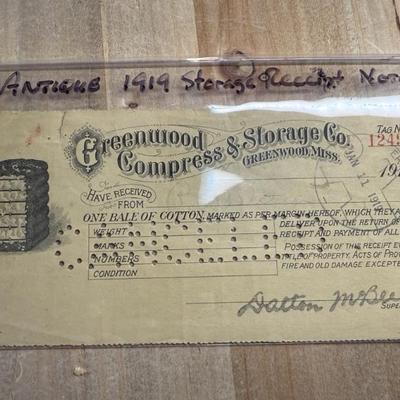 ANTIQUE 1919 Storage Receipt Not
Greenwood
Compress & Storage Co.
GREENWOOD, MISS.
TAG N
1249
JAN 11 191
191
HAVE RECEIVED
FROM
ONE BALE OF COTTON, MARKED AS PER MARGIN HEREOF, WHICH THEY A
DELIVER UPON THE RETURN OF
WEIGHT
RECEIPT AND PAYMENT OF ALL
MARKS
POSSESSION OF THIS RECEIPT EV
NUMBERS
TITLE OF PROPERTY. ACTS OF PROV
CONDITION
FIRE AND OLD DAMAGE EXCEPTE
CANCELLED
Dalton McBee
SUPE